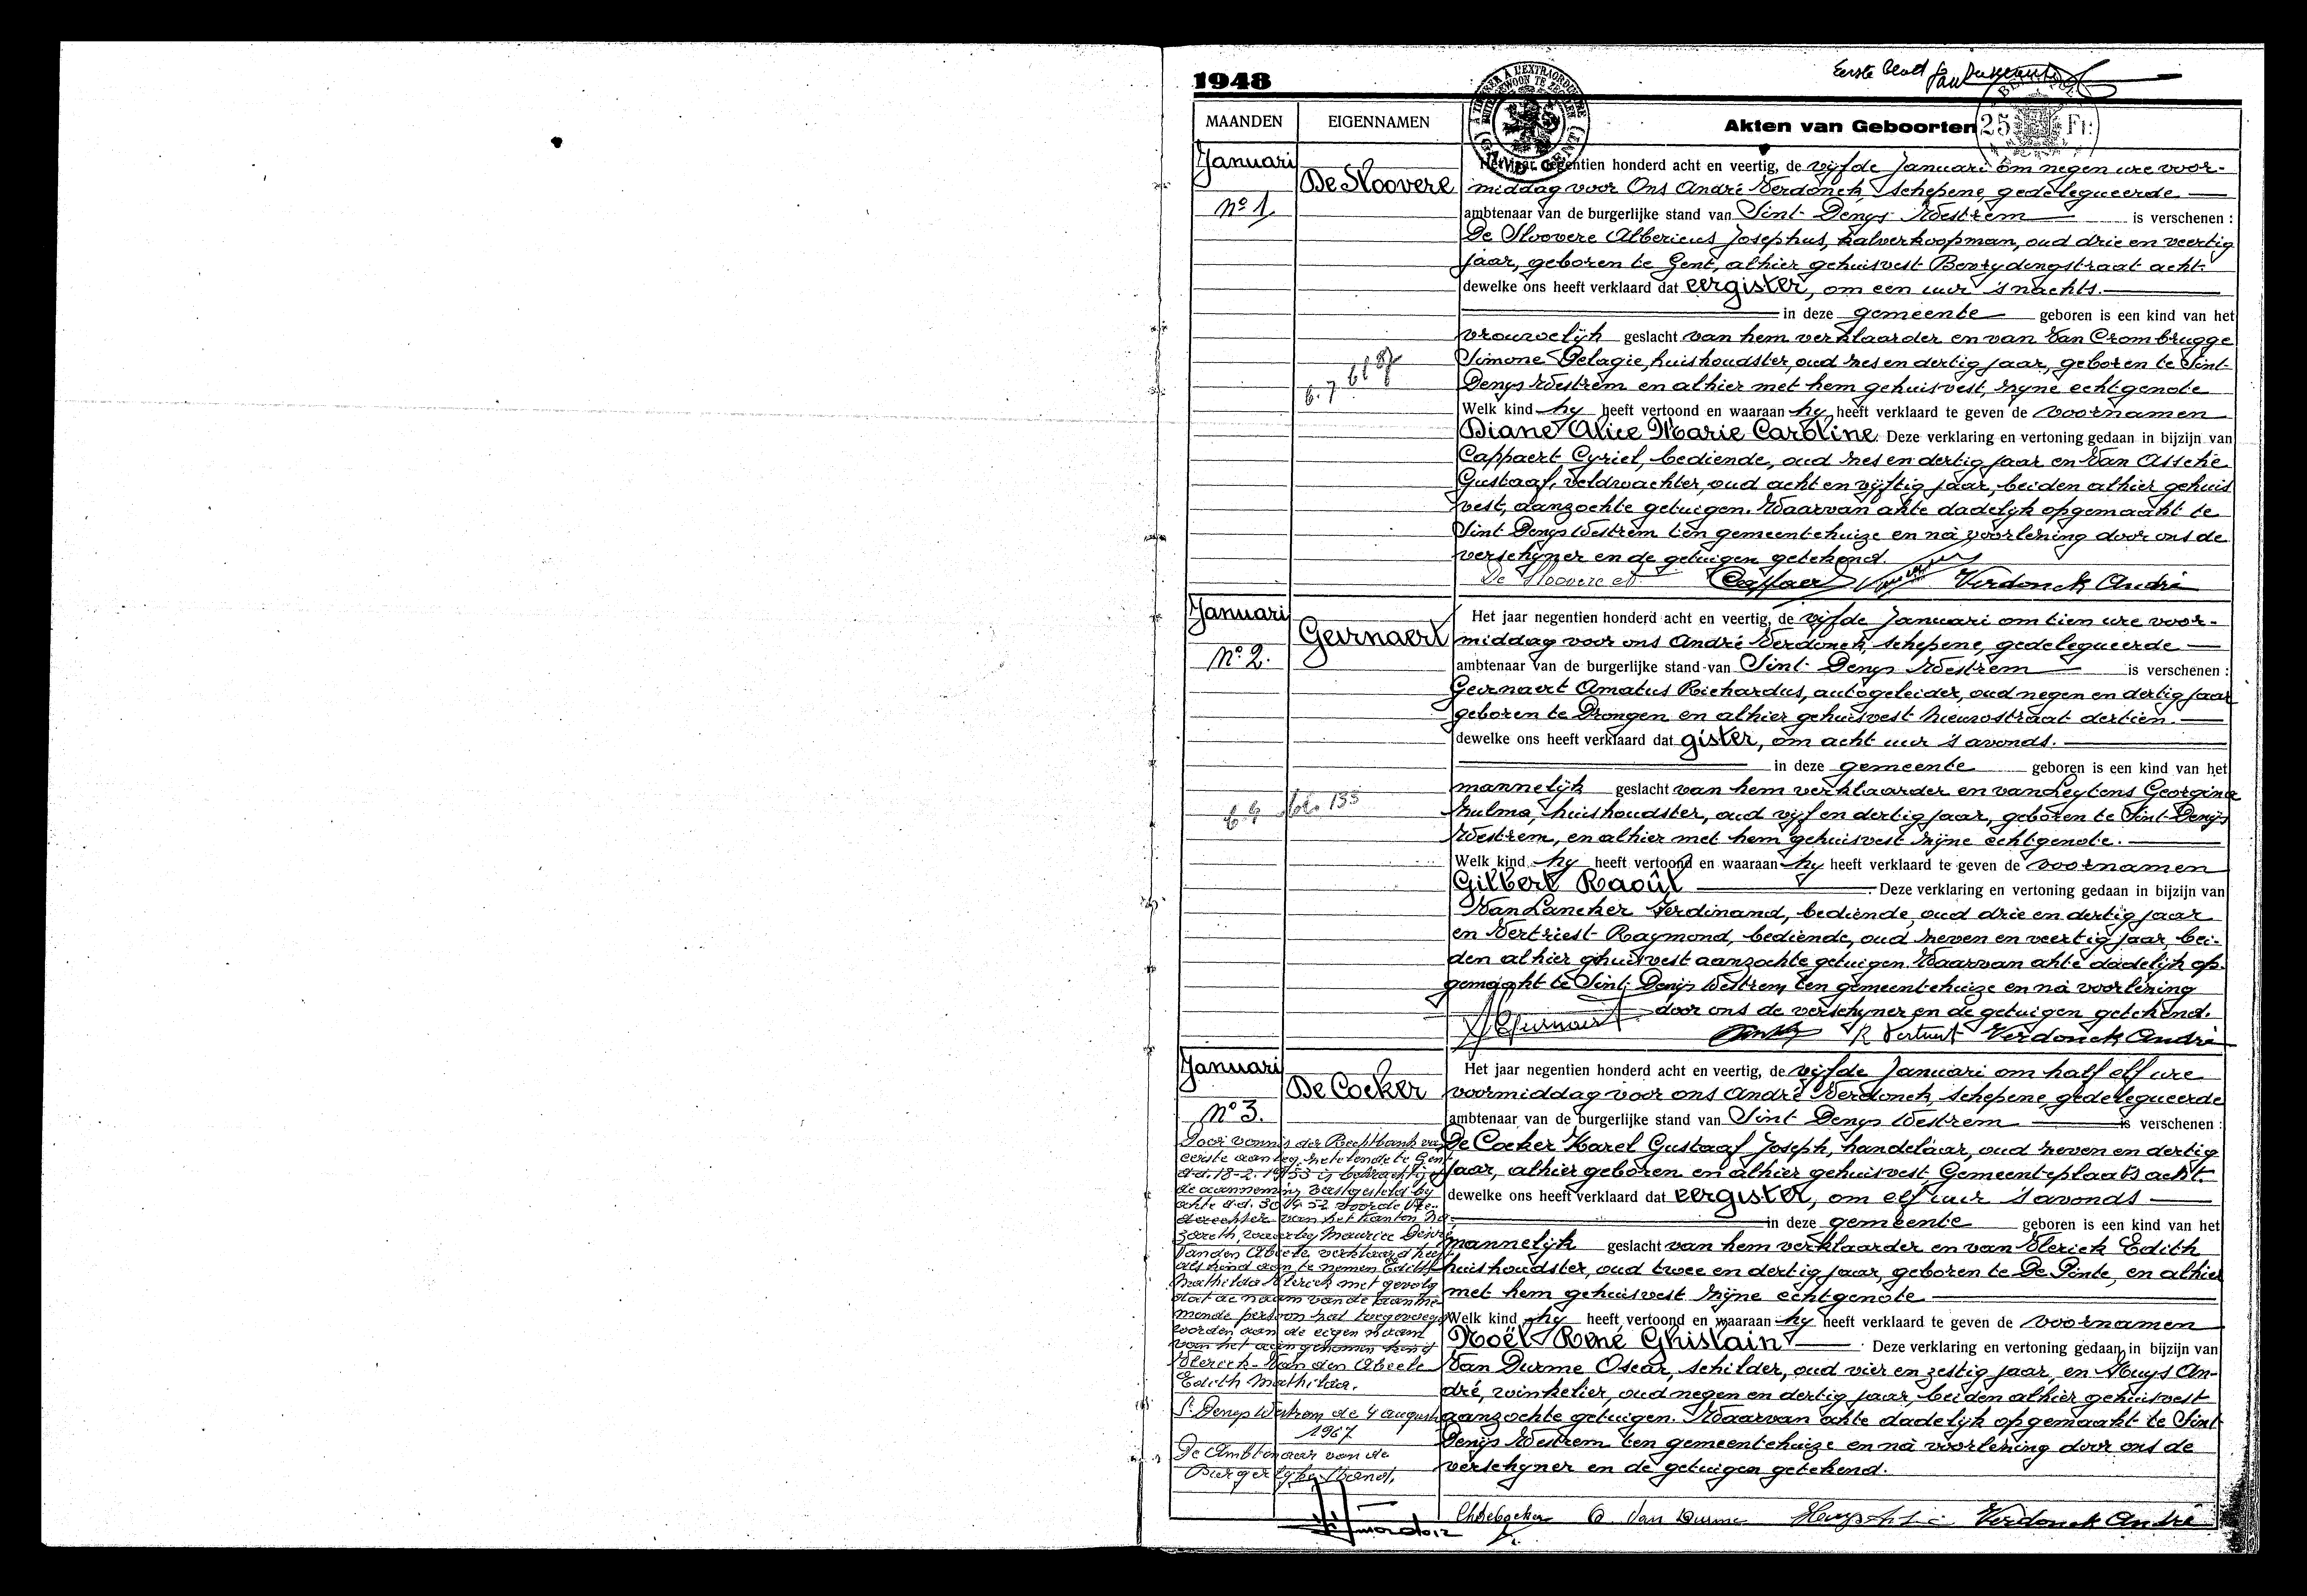 1948
Eerste blad
MAANDEN
EIGENNAMEN
Akten van Geboorten
25 Fr.
Januari
No 1
De Sloovere
Het jaar negentien honderd acht en veertig, de vijfde Januari om negen ure voor-
middag voor Ons André Verdonck, schepene, gedelegueerde
ambtenaar van de burgerlijke stand van Sint Denys Westrem is verschenen :
De Sloovere Albericus Josephus, kalverkoopman, oud drie en veertig
jaar, geboren te Gent, alhier gehuisvest Bevrydingstraat acht.
dewelke ons heeft verklaard dat eergister, om een uur 's nachts.
in deze gemeente geboren is een kind van het
vrouwelijk geslacht van hem verklaarder en van Van Crombrugge
Simone Pelagie, huishoudster, oud zes en dertig jaar, geboren te Sint
Denys Westrem en alhier met hem gehuisvest, zyne echtgenote
Welk kind hy heeft vertoond en waaraan hy heeft verklaard te geven de voornamen
Diane Alice Marie Caroline. Deze verklaring en vertoning gedaan in bijzijn van
Cappaert Cyriel, bediende, oud zes en dertig jaar en Van Assche
Gustaaf, veldwachter, oud acht en vijftig jaar, beiden alhier gehuis
vest, aanzochte getuigen. Waarvan akte dadelyk opgemaakt te
Sint Denys Westrem ten gemeentehuize en nà voorlezing door ons de
verschyner en de getuigen getekend.
De Sloovere Cappaert Verdonck André
Januari
No 2.
Geirnaert
Het jaar negentien honderd acht en veertig, de vijfde Januari om tien ure voor-
middag voor ons André Verdonck, schepene, gedelegueerde
ambtenaar van de burgerlijke stand van Sint Denys Westrem is verschenen :
Geirnaert Amatus Richardus, autogeleider, oud negen en dertig jaar
geboren te Drongen en alhier gehuisvest Nieuwstraat dertien.
dewelke ons heeft verklaard dat gister, om acht uur 's avonds.
in deze gemeente geboren is een kind van het
mannelijk geslacht van hem verklaarder en van Leytens Georgina
Zulma, huishoudster, oud vijf en dertig jaar, geboren te Sint Denijs
Westrem, en alhier met hem gehuisvest zijne echtgenote.
Welk kind hy heeft vertoond en waaraan hy heeft verklaard te geven de voornamen
Gilbert Raoûl Deze verklaring en vertoning gedaan in bijzijn van
Van Lancker Ferdinand, bediende, oud drie en dertig jaar
en Vertriest Raymond, bediende, oud zeven en veertig jaar, bei-
den alhier gehuisvest aanzochte getuigen. Waarvan akte dadelijk op-
gemaakt te Sint Denijs Westrem, ten gemeentehuize en nà voorlezing
door ons de verschyner en de getuigen getekend.
Geirnaert R Vertriest Verdonck André
Januari
No 3.
De Cocker
Het jaar negentien honderd acht en veertig, de vijfde Januari om half elf ure
voormiddag voor ons André Verdonck, schepene, gedelegueerde
ambtenaar van de burgerlijke stand van Sint Denys Westrem is verschenen :
De Cocker Karel Gustaaf Joseph, handelaar, oud zeven en dertig
jaar, alhier geboren en alhier gehuisvest Gemeenteplaats acht.
dewelke ons heeft verklaard dat eergister, om elf uur 's avonds
in deze gemeente geboren is een kind van het
mannelijk geslacht van hem verklaarder en van Vlerick Edith
huishoudster, oud twee en dertig jaar, geboren te De Pinte, en alhier
met hem gehuisvest zijne echtgenote
Welk kind hy heeft vertoond en waaraan hy heeft verklaard te geven de voornamen
Noël René Ghislain Deze verklaring en vertoning gedaan in bijzijn van
Van Durme Oscar, schilder, oud vier en zestig jaar, en Huys An-
dré, winkelier, oud negen en dertig jaar, beiden alhier gehuisvest
aanzochte getuigen. Waarvan akte dadelyk opgemaakt te Sint
Denijs Westrem ten gemeentehuize en nà voorlezing door ons de
verschyner en de getuigen getekend.
O Van Durme Verdonck André
Door vonnis der Rechtbank van
eerste aanleg, zetelende te Gent
d.d. 18-2-1953 is bekrachtigd
de aanneming vastgesteld by
akte d.d. voor de Vre-
derechter van het kanton Na-
zareth, waarby Maurice
Van den Abeele verklaard heeft
als kind aan te nemen Edith
Mathilda Vlerick met gevolg
dat de naam van de aanne-
mende persoon zal toegevoegd
worden aan de eigen naam
van het aangenomen kind
Vlerick-Van den Abeele
Edith Mathilda.
St Denys Westrem de 4 augustus
1967
De Ambtenaar van de
Burgerlyke Stand,